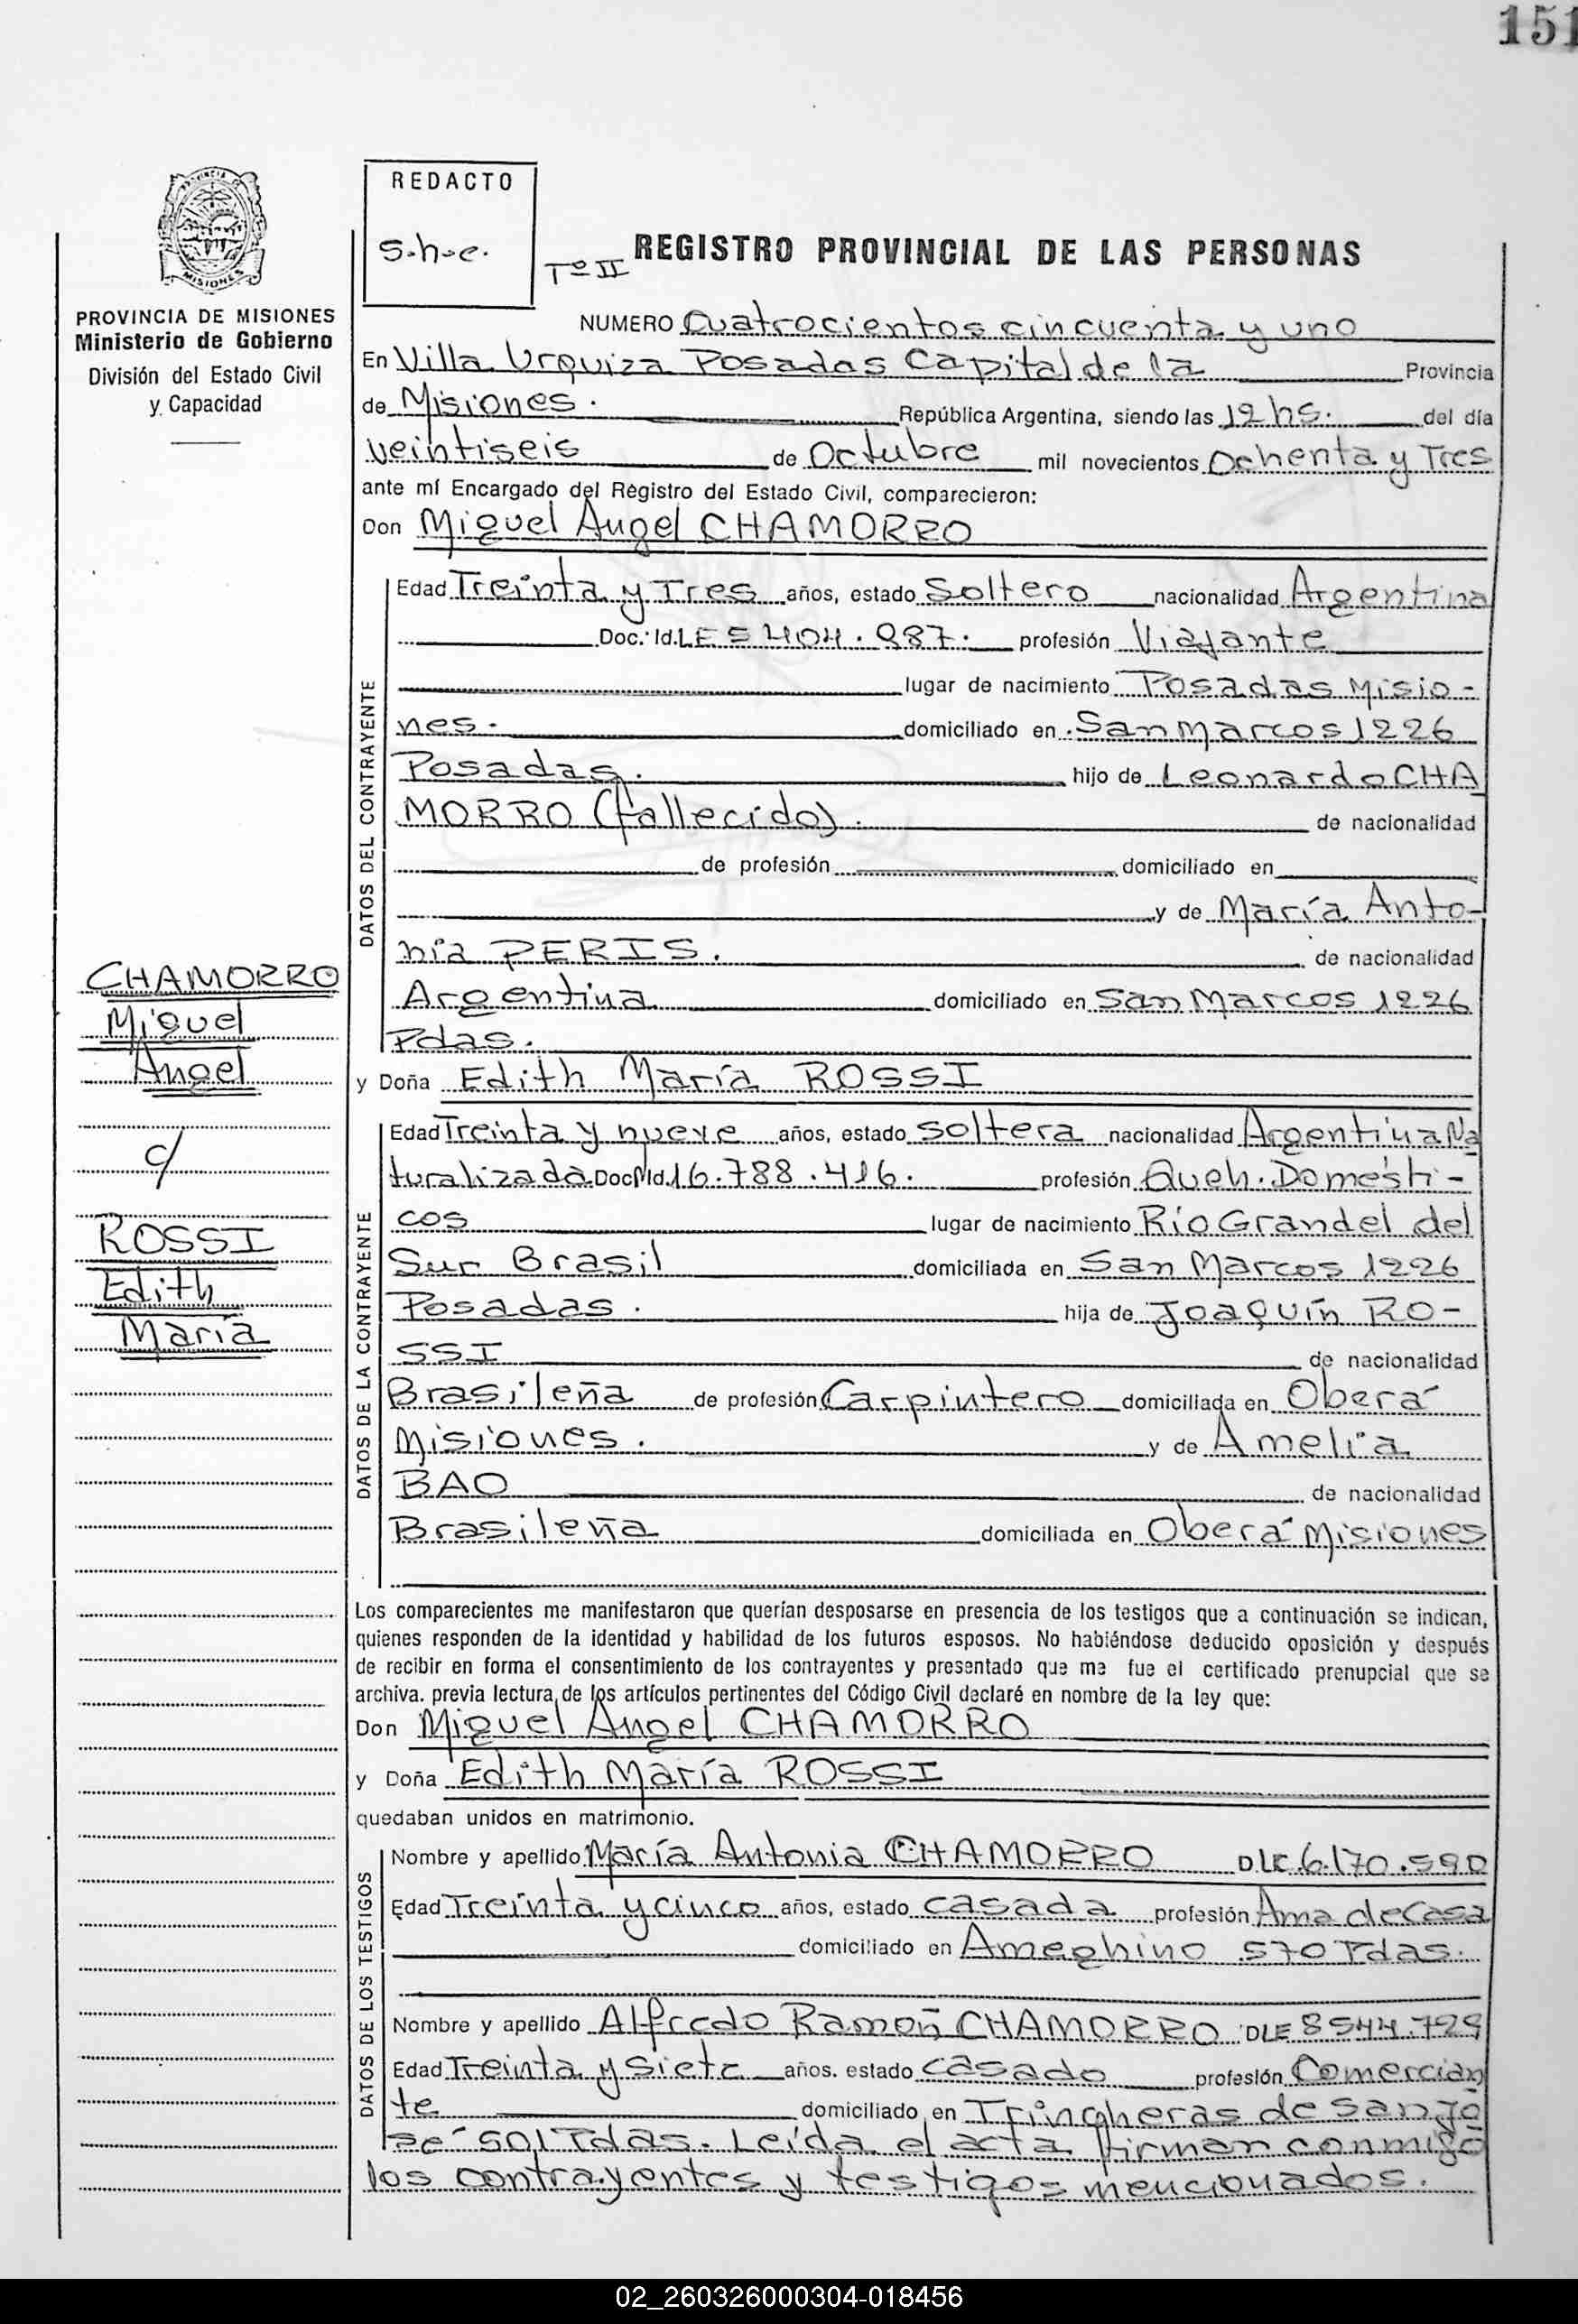 151
REDACTO
S.h.e.
Tº II
REGISTRO PROVINCIAL DE LAS PERSONAS
MISIONES
PROVINCIA DE MISIONES
Ministerio de Gobierno
División del Estado Civil
y Capacidad
NUMERO Cuatrocientos cincuenta y uno
En Villa Urquiza Posadas Capital de la Provincia
de Misiones. República Argentina, siendo las 12 hs. del día
veintiseis de Octubre mil novecientos Ochenta y Tres
ante mí Encargado del Registro del Estado Civil, comparecieron:
Don Miguel Angel CHAMORRO
DATOS DEL CONTRAYENTE
Edad Treinta y Tres años, estado Soltero nacionalidad Argentina
Doc. Id. LE 5404.987. profesión Viajante
lugar de nacimiento Posadas Misio-
nes. domiciliado en San Marcos 1226
Posadas. hijo de Leonardo CHA
MORRO (fallecido). de nacionalidad
de profesión domiciliado en
y de María Anto-
nia PERIS. de nacionalidad
Argentina domiciliado en San Marcos 1226
Pdas.
CHAMORRO
Miguel
Angel
c/
ROSSI
Edith
María
y Doña Edith María ROSSI
DATOS DE LA CONTRAYENTE
Edad Treinta y nueve años, estado soltera nacionalidad Argentina Na
turalizada Doc. Id. 16.788.416. profesión Queh. Domésti-
cos lugar de nacimiento Río Grandel del
Sur Brasil domiciliada en San Marcos 1226
Posadas. hija de Joaquín RO-
SSI de nacionalidad
Brasileña de profesión Carpintero domiciliada en Oberá
Misiones. y de Amelia
BAO de nacionalidad
Brasileña domiciliada en Oberá Misiones
Los comparecientes me manifestaron que querían desposarse en presencia de los testigos que a continuación se indican,
quienes responden de la identidad y habilidad de los futuros esposos. No habiéndose deducido oposición y después
de recibir en forma el consentimiento de los contrayentes y presentado que me fue el certificado prenupcial que se
archiva. previa lectura de los artículos pertinentes del Código Civil declaré en nombre de la ley que:
Don Miguel Angel CHAMORRO
y Doña Edith María ROSSI
quedaban unidos en matrimonio.
DATOS DE LOS TESTIGOS
Nombre y apellido María Antonia CHAMORRO DLC 6.170.590
Edad Treinta y cinco años, estado casada profesión Ama de Casa
domiciliado en Ameghino 570 Pdas.
Nombre y apellido Alfredo Ramón CHAMORRO DLE 8544.729
Edad Treinta y siete años. estado casado profesión Comercian
te domiciliado en Trincheras de San Jo
sé 501 Pdas. Leída el acta firman conmigo
los contrayentes y testigos mencionados.
02_260326000304-018456